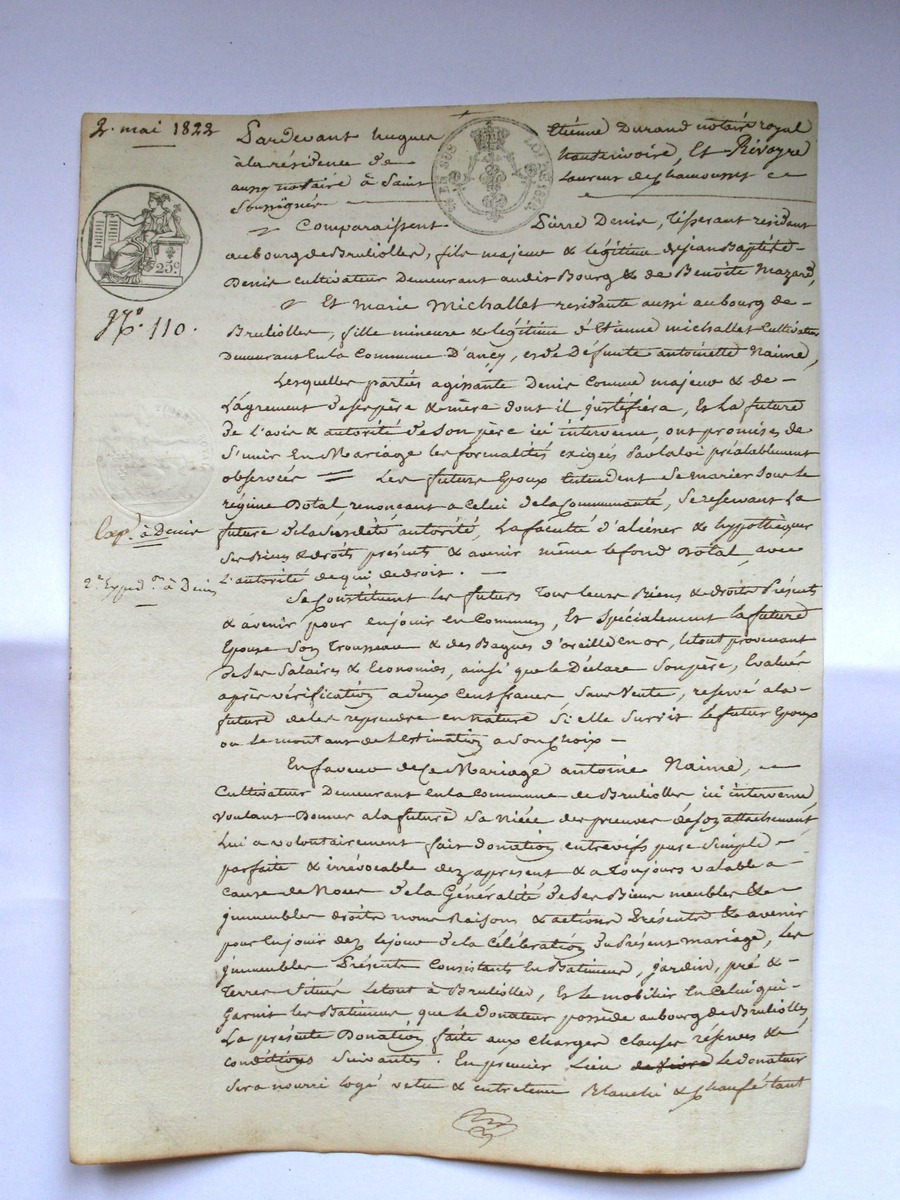 2. mai 1822
Pardevant hugues Etienne Durand notaire royal
à la résidence de hauterivoire, Et Rivoyre
aussy notaire à Saint Laurent de chamousset
Soussignés
25c
Nº 110.
Comparaissent Pierre Denis, tisserant résidant
au bourg de Brullolles, fils majeur & légitime de jean Baptiste
Denis cultivateur Demeurant audit Bourg & de Benoite Mazard,
Et marie Michallet residante aussi au bourg de
Brullolles, fille mineure & légitime d'Etienne michallet Cultivateur
Demeurant En la Commune D'ancy, et de Défunte antoinette Naime,
Lesquelles parties agissante Denis Comme majeur & de
L'agrement de ses père & mère dont il justifiera, Et La future
de l'avis & autorité de Son père ici intervenu, ont promises de
S'unir En Mariage les formalités exigées par la loi préalablement
observées = Les futurs Epoux Entendent Se marier Sous le
régime Dotal, renonçant a Celui de la Communauté, Se réservant La
future de la Susdite autorité, La faculté d'aliéner & hypothéquer
Ses Biens & droits présents & avenir même le fond Dotal, avec
L'autorité de qui de droit.
Exp.on à Denis
2.e Exped.on à Denis
Se Constituent les futurs Tous leurs Biens & droits Présents
& avenir pour en jouir en Commun, Et Spécialement la future
Epouse Son Trousseau & des Bagues d'oreille En or, le tout provenant
de Ses Salaires & Economies, ainsi que le Déclare Son père, Evalués
après vérification a deux Cent francs Sans Vente, reservé a la
future de les reprendre en nature Si elle Survit le futur Epoux
ou le montant de l'estimation a Son Choix
En faveur de Ce Mariage antoine Naime,
Cultivateur Demeurant En la Commune de Brullolles ici intervenu
voulant Donner a la future Sa Nièce des preuves de Son attachement
Lui a volontairement fait donation entrevifs pure Simple
parfaite & irrévocable dez apresent & a Toujours valable a
cause de Noces de la Généralité de Ses Biens meubles &
jmmeubles droits noms Raisons & actions Présents & avenir
pour En jouir dez le jour de la Célébration du Présent mariage, Les
jmmeubles Présents Consistants En Batiments, jardin, pré &
Terres Situés Le tout à Brullolles, Et le mobilier En Celui qui
Garnit les Batiments que le Donateur possède au bourg de Brullolles,
La présente Donation faite aux charges clauses réserves &
conditions Suivantes. En premier Lieu le donateur
Sera nourri logé vetu & entretenu Blanchi & chaufé tant